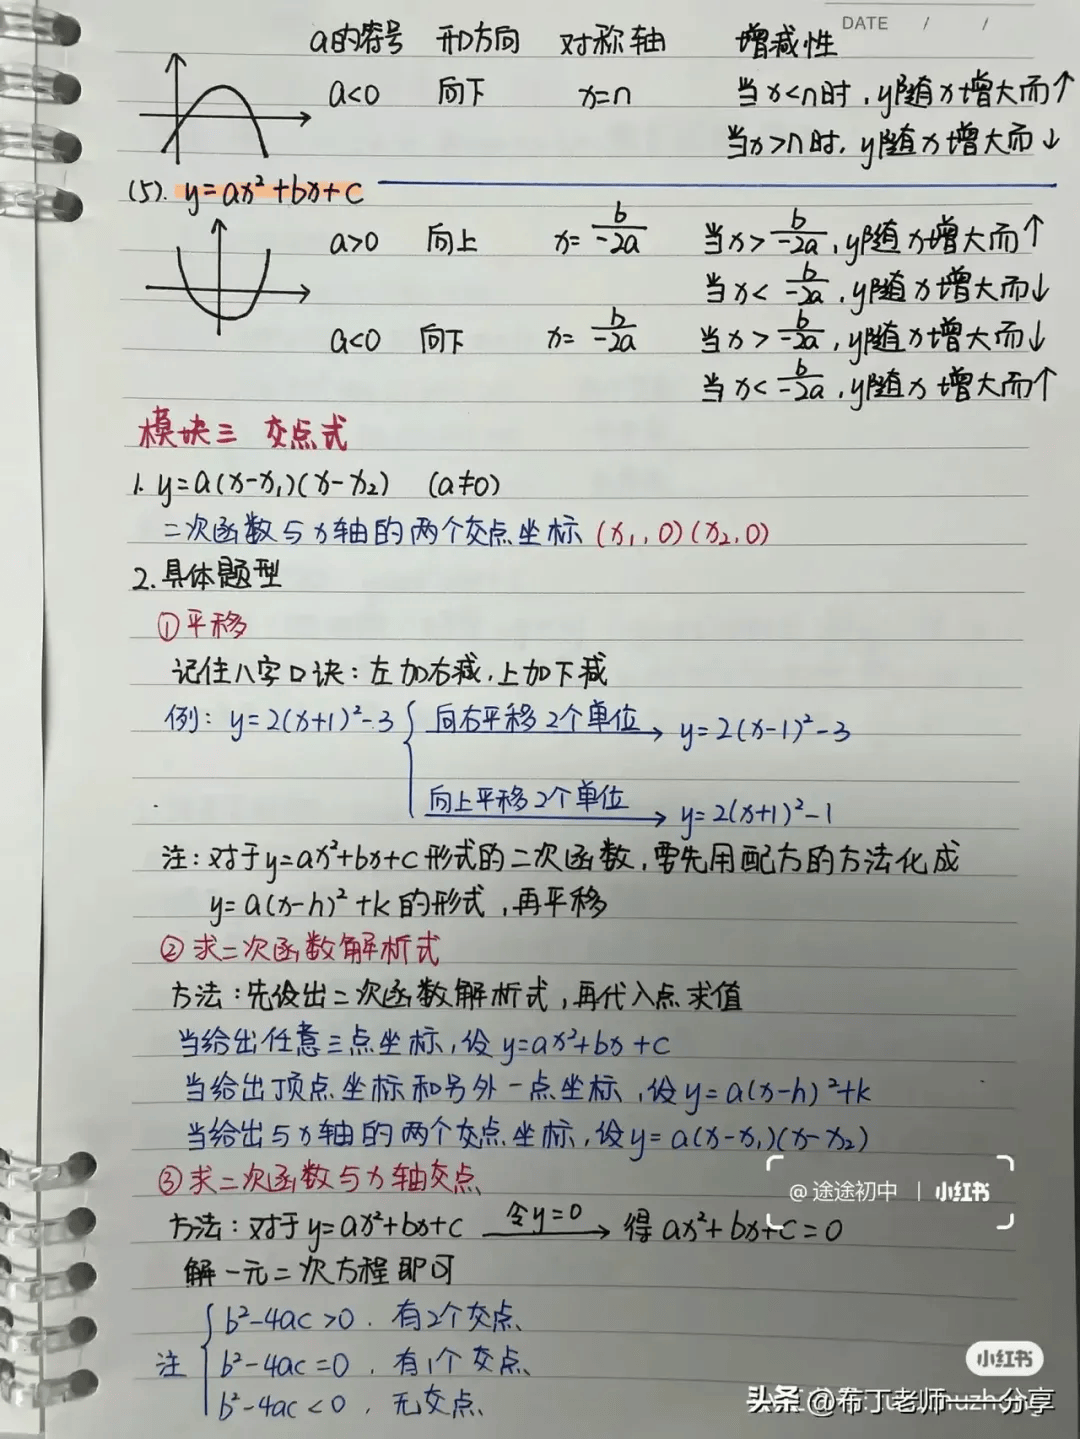 DATE / /
a的符号 开口方向 对称轴 增减性
a<0 向下 x=n 当x<n时,y随x增大而↑
当x>n时,y随x增大而↓
(5). y=ax²+bx+c
a>0 向上 x=b/-2a 当x>b/-2a,y随x增大而↑
当x<b/-2a,y随x增大而↓
a<0 向下 x=b/-2a 当x>b/-2a,y随x增大而↓
当x<b/-2a,y随x增大而↑
模块三 交点式
1. y=a(x-x₁)(x-x₂) (a≠0)
二次函数与x轴的两个交点坐标(x₁,0)(x₂,0)
2.具体题型
①平移
记住八字口诀:左加右减,上加下减
例: y=2(x+1)²-3 向右平移2个单位 y=2(x-1)²-3
向上平移2个单位 y=2(x+1)²-1
注:对于y=ax²+bx+c形式的二次函数,需先用配方的方法化成
y=a(x-h)²+k的形式,再平移
②求二次函数解析式
方法:先设出二次函数解析式,再代入点求值
当给出任意三点坐标,设y=ax²+bx+c
当给出顶点坐标和另外一点坐标,设y=a(x-h)²+k
当给出与x轴的两个交点坐标,设y=a(x-x₁)(x-x₂)
③求二次函数与x轴交点
@途途初中 | 小红书
方法:对于y=ax²+bx+c 令y=0 得ax²+bx+c=0
解一元二次方程即可
b²-4ac>0.有2个交点
注 b²-4ac=0,有1个交点
b²-4ac<0,无交点
小红书
头条@布丁老师一分享